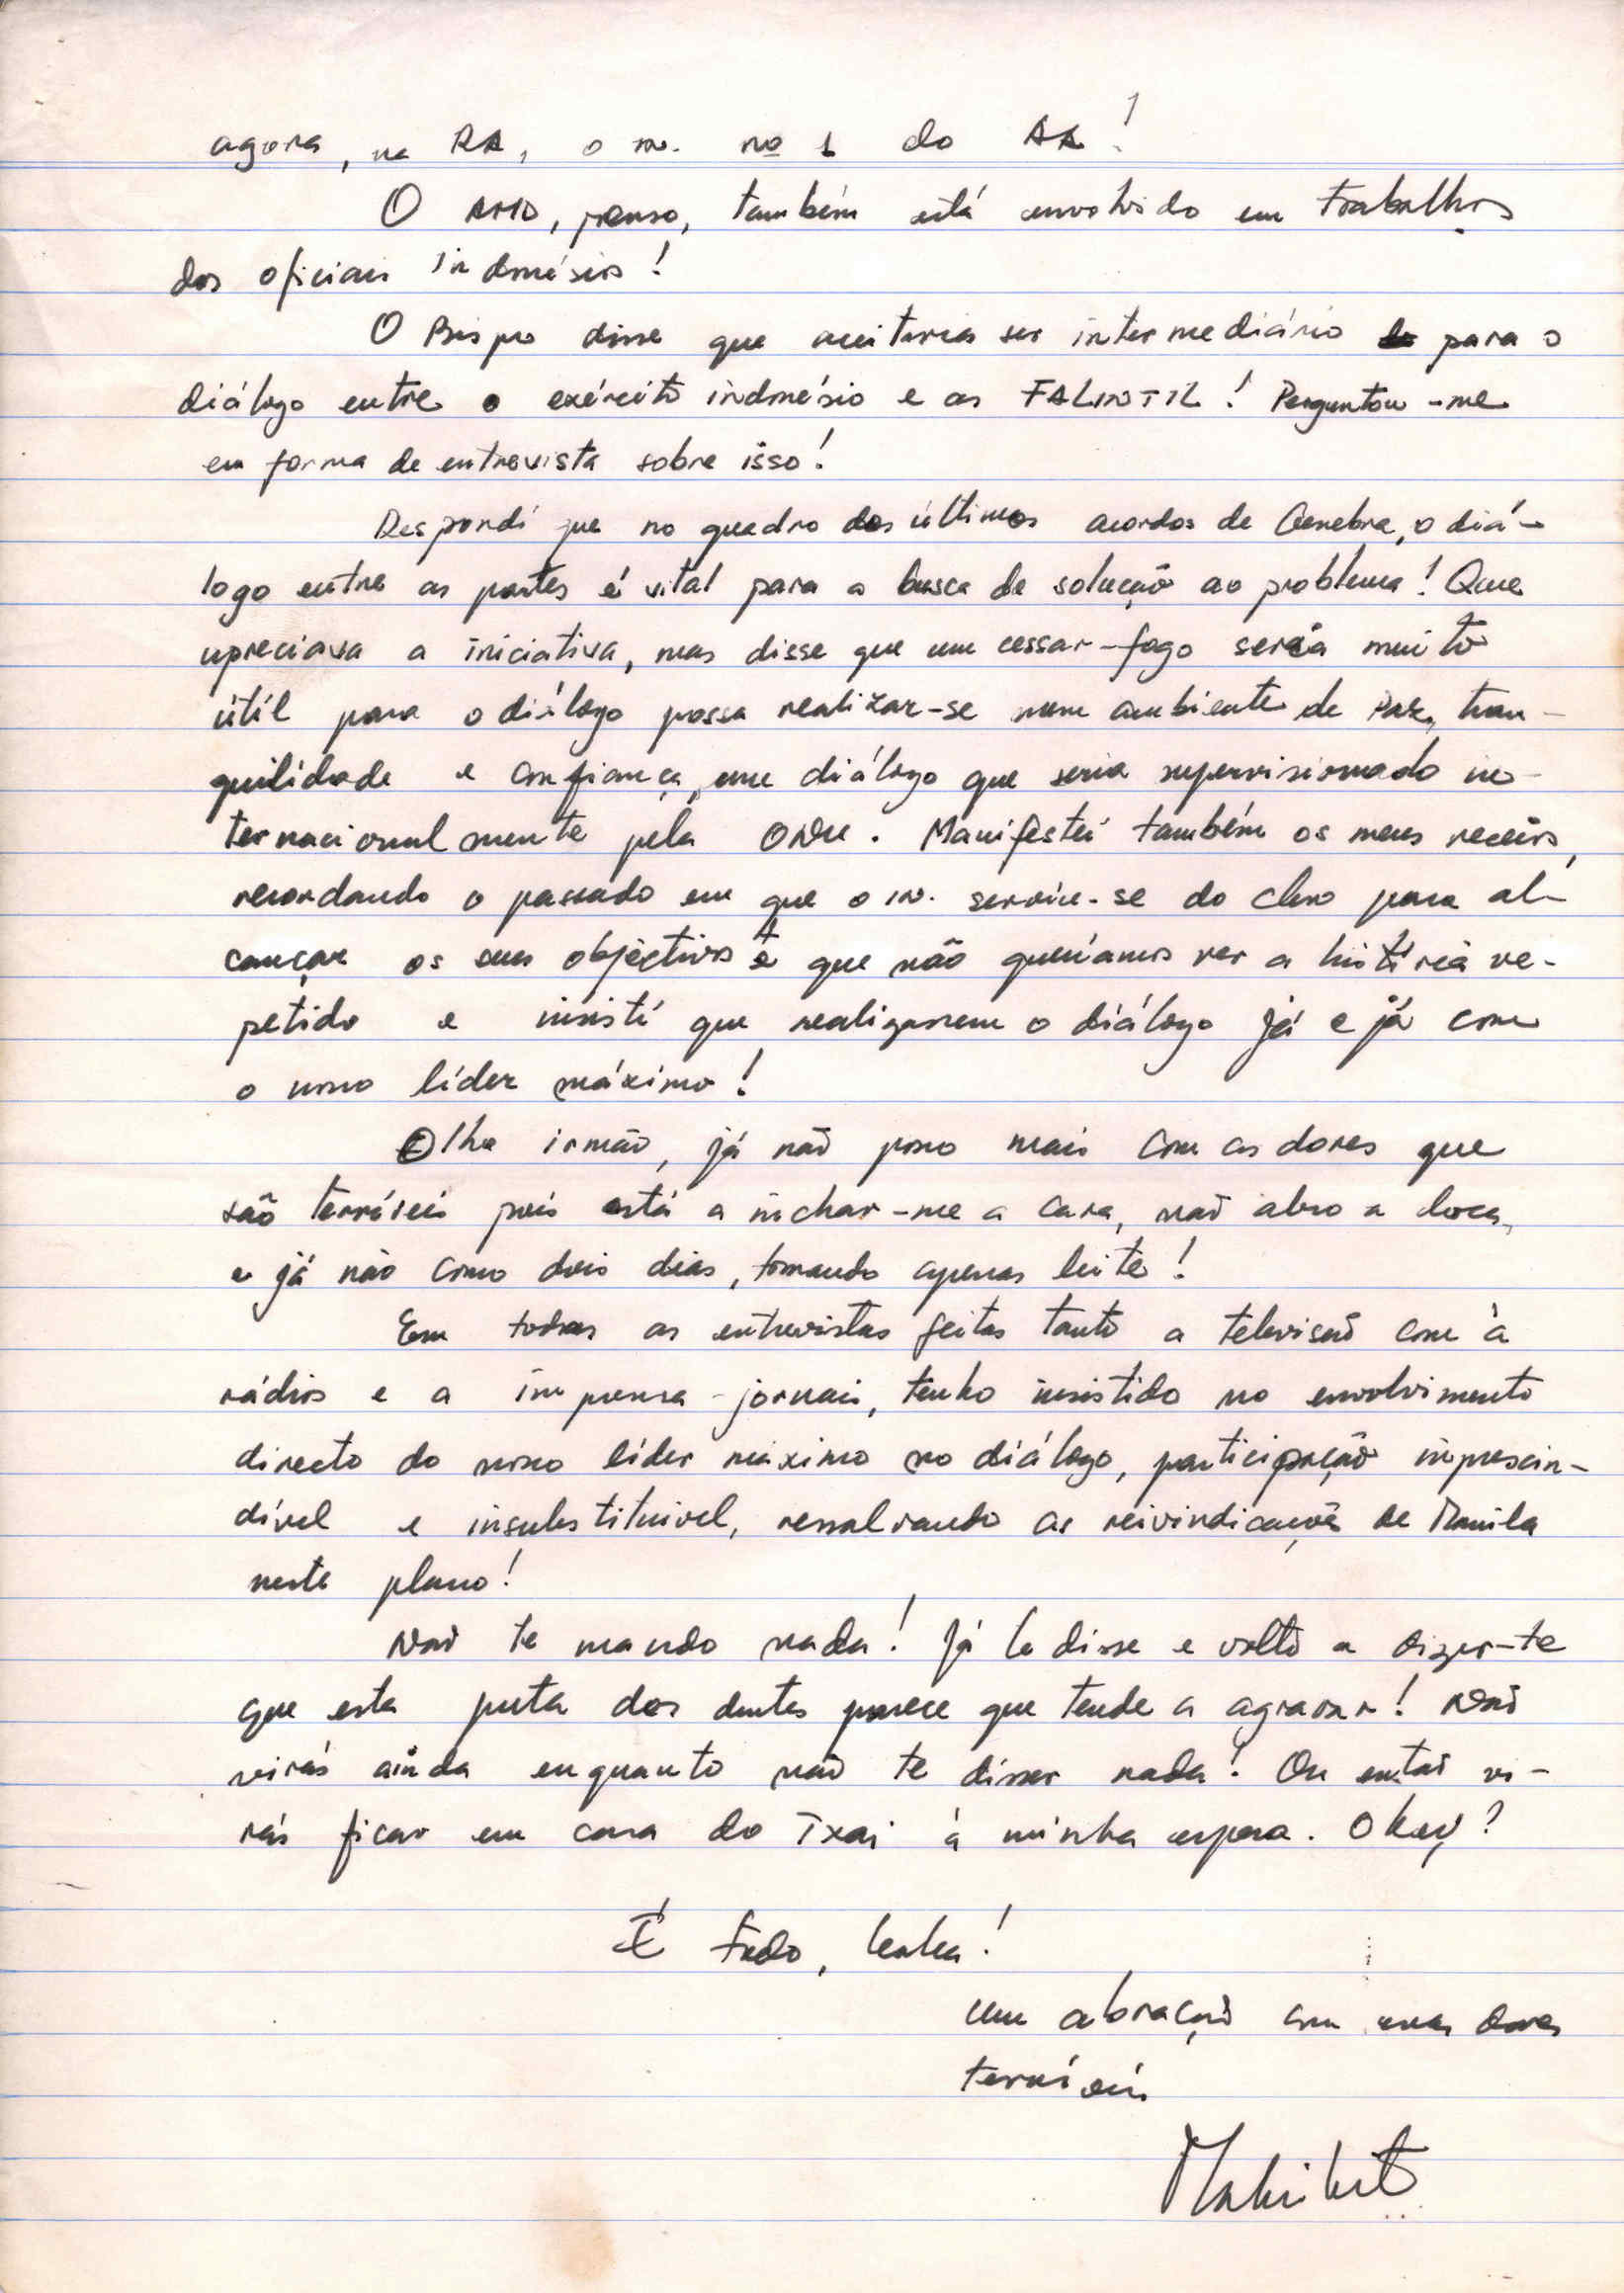 agora, na RA, o in. no 1 do AA!
O AMD, penso, também está envolvido em trabalhos
dos oficiais indonésios!
O Bispo disse que aceitaria ser intermediário para o
diálogo entre o exército indonésio e as FALINTIL! Perguntou-me
em forma de entrevista sobre isso!
Respondí que no quadro dos últimos acordos de Genebra, o diá-
logo entre as partes é vital para a busca de solução ao problema! Que
apreciava a iniciativa, mas disse que um cessar-fogo seria muito
útil para o diálogo possa realizar-se num ambiente de Paz, tran-
quilidade e confiança, um diálogo que seria supervisionado in-
ternacionalmente pela ONU. Manifestei também os meus receios,
recordando o passado em que o in. serviu-se do clero para al-
cançar os seus objectivos e que não queríamos ver a história re-
petida e insistí que realizassem o diálogo já e já com
o nosso líder máximo!
Olha irmão, já não posso mais com as dores que
são terríveis pois está a inchar-me a cara, não abro a boca,
e já não como dois dias, tomando apenas leite!
Em todas as entrevistas feitas tanto a televisão com à
rádios e a imprensa-jornais, tenho insistido no envolvimento
directo do nosso líder máximo no diálogo, participação imprescin-
dível e insubstituível, ressalvando as reivindicações de Manila
neste plano!
Não te mando nada! Já te disse e volto a dizer-te
que esta puta dos dentes parece que tende a agravar! Não
virás ainda enquanto não te disser nada! Ou então vi-
rás ficar em casa do Txai à minha espera. Okay?
É tudo,
um abração com umas dores
terríveis